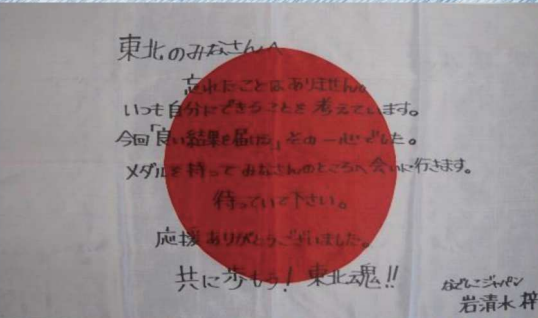 東北のみなさんへ
忘れたことはありません。
いつも自分にできることを考えています。
今回「良い結果を届ける」その一心でした。
メダルを持ってみなさんのところへ会いに行きます。
待っていて下さい。
応援ありがとうございました。
共に歩もう！東北魂!!
なでしこジャパン
岩清水 梓